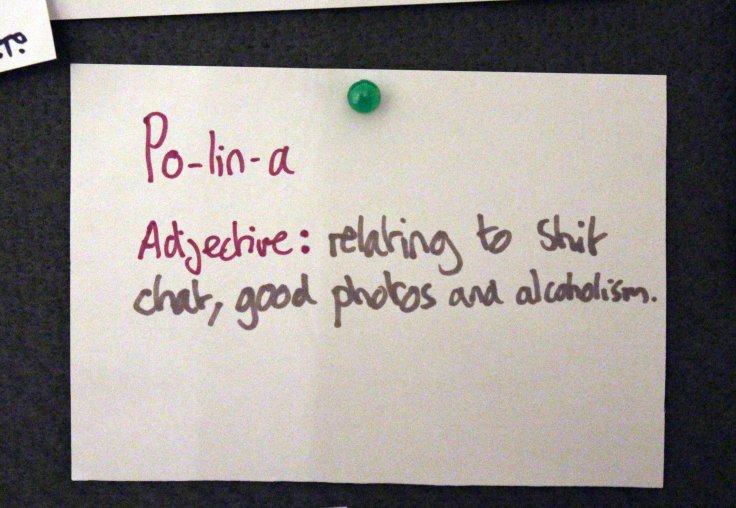 Po-lin-a
Adjective: relating to shit
chat, good photos and alcoholism.